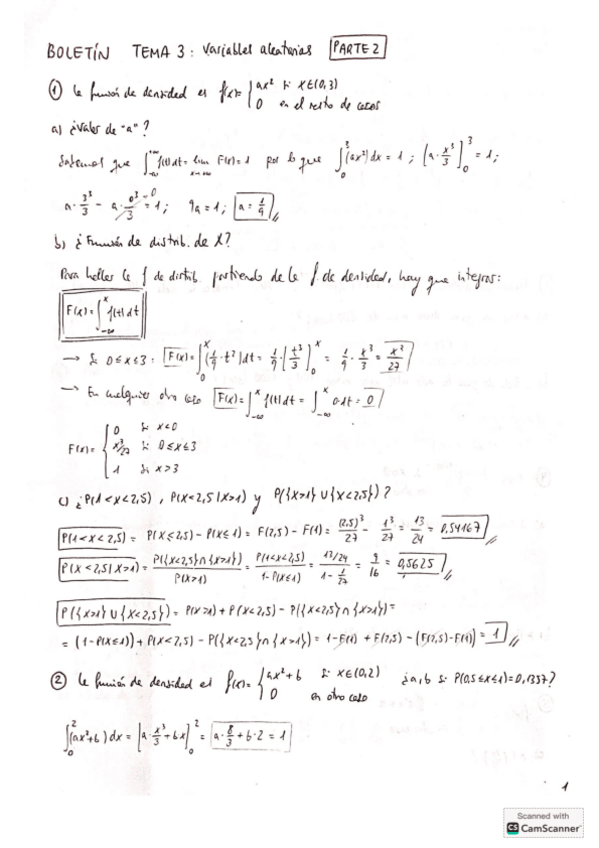 BOLETÍN TEMA 3: Variables aleatorias PARTE 2
① la función de densidad es f(x)= { ax² si x∈(0,3)
0 en el resto de casos
a) ¿Valor de "a"?
Sabemos que ∫_{-∞}^{+∞} f(t) dt = lim_{x→∞} F(x) = 1 por lo que ∫_0^3 (ax²) dx = 1 ; [a·x³/3]_0^3 = 1;
a·3³/3 - a·0³/3 = 1; 9a = 1; a = 1/9
b) ¿Función de distrib. de X?
Para hallar la f de distrib. partiendo de la f. de densidad, hay que integrar:
F(x) = ∫_{-∞}^x f(t) dt
→ Si 0≤x≤3: F(x) = ∫_0^x (1/9·t²) dt = 1/9·[t³/3]_0^x = 1/9·x³/3 = x³/27
→ En cualquier otro caso F(x) = ∫_{-∞}^x f(t) dt = ∫_{-∞}^x 0 dt = 0
F(x) = { 0 si x<0
x³/27 si 0≤x≤3
1 si x>3
c) ¿P(1<X<2,5), P(X<2,5|X>1) y P({X>1}∪{X<2,5})?
P(1<X<2,5) = P(X≤2,5) - P(X≤1) = F(2,5) - F(1) = (2,5)³/27 - 1³/27 = 13/24 = 0,54167
P(X<2,5|X>1) = P({X<2,5}∩{X>1})/P(X>1) = P(1<X<2,5)/1-P(X≤1) = 13/24/1-1/27 = 9/16 = 0,5625
P({X>1}∪{X<2,5}) = P(X>1) + P(X<2,5) - P({X<2,5}∩{X>1}) =
= (1-P(X≤1)) + P(X<2,5) - P({X<2,5}∩{X>1}) = 1-F(1) + F(2,5) - (F(2,5)-F(1)) = 1
② La función de densidad es f(x)= { ax²+b si x∈(0,2) ¿a,b si P(0,5≤x≤1)=0,1357?
0 en otro caso
∫_0^2 (ax²+b) dx = [a·x³/3+bx]_0^2 = a·8/3+b·2 = 1
1
Scanned with
CS CamScanner